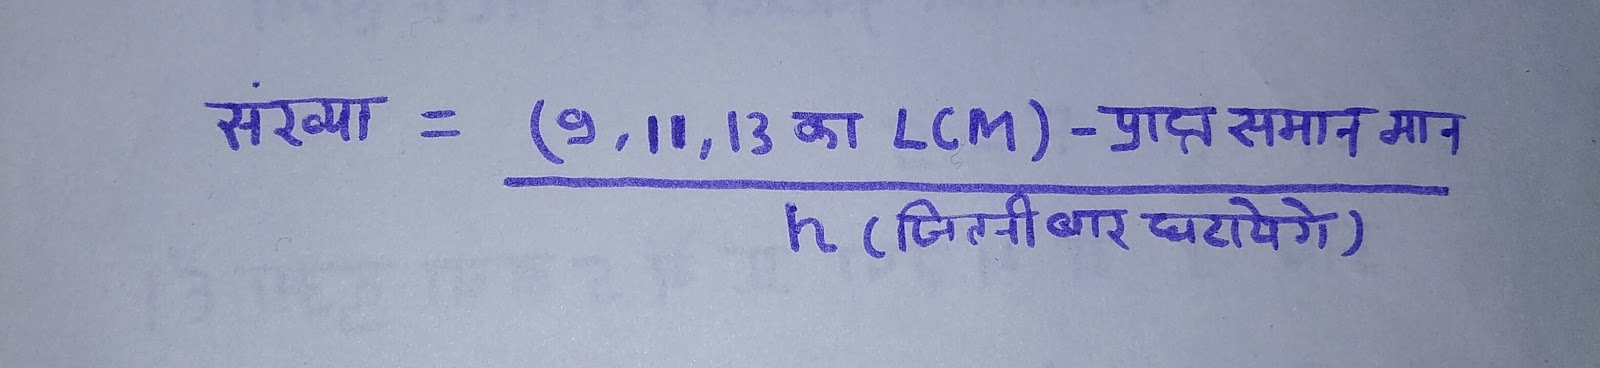 संख्या = (9,11,13 का LCM) - प्राप्त समान मान
n (जितनी बार घटायेगे)